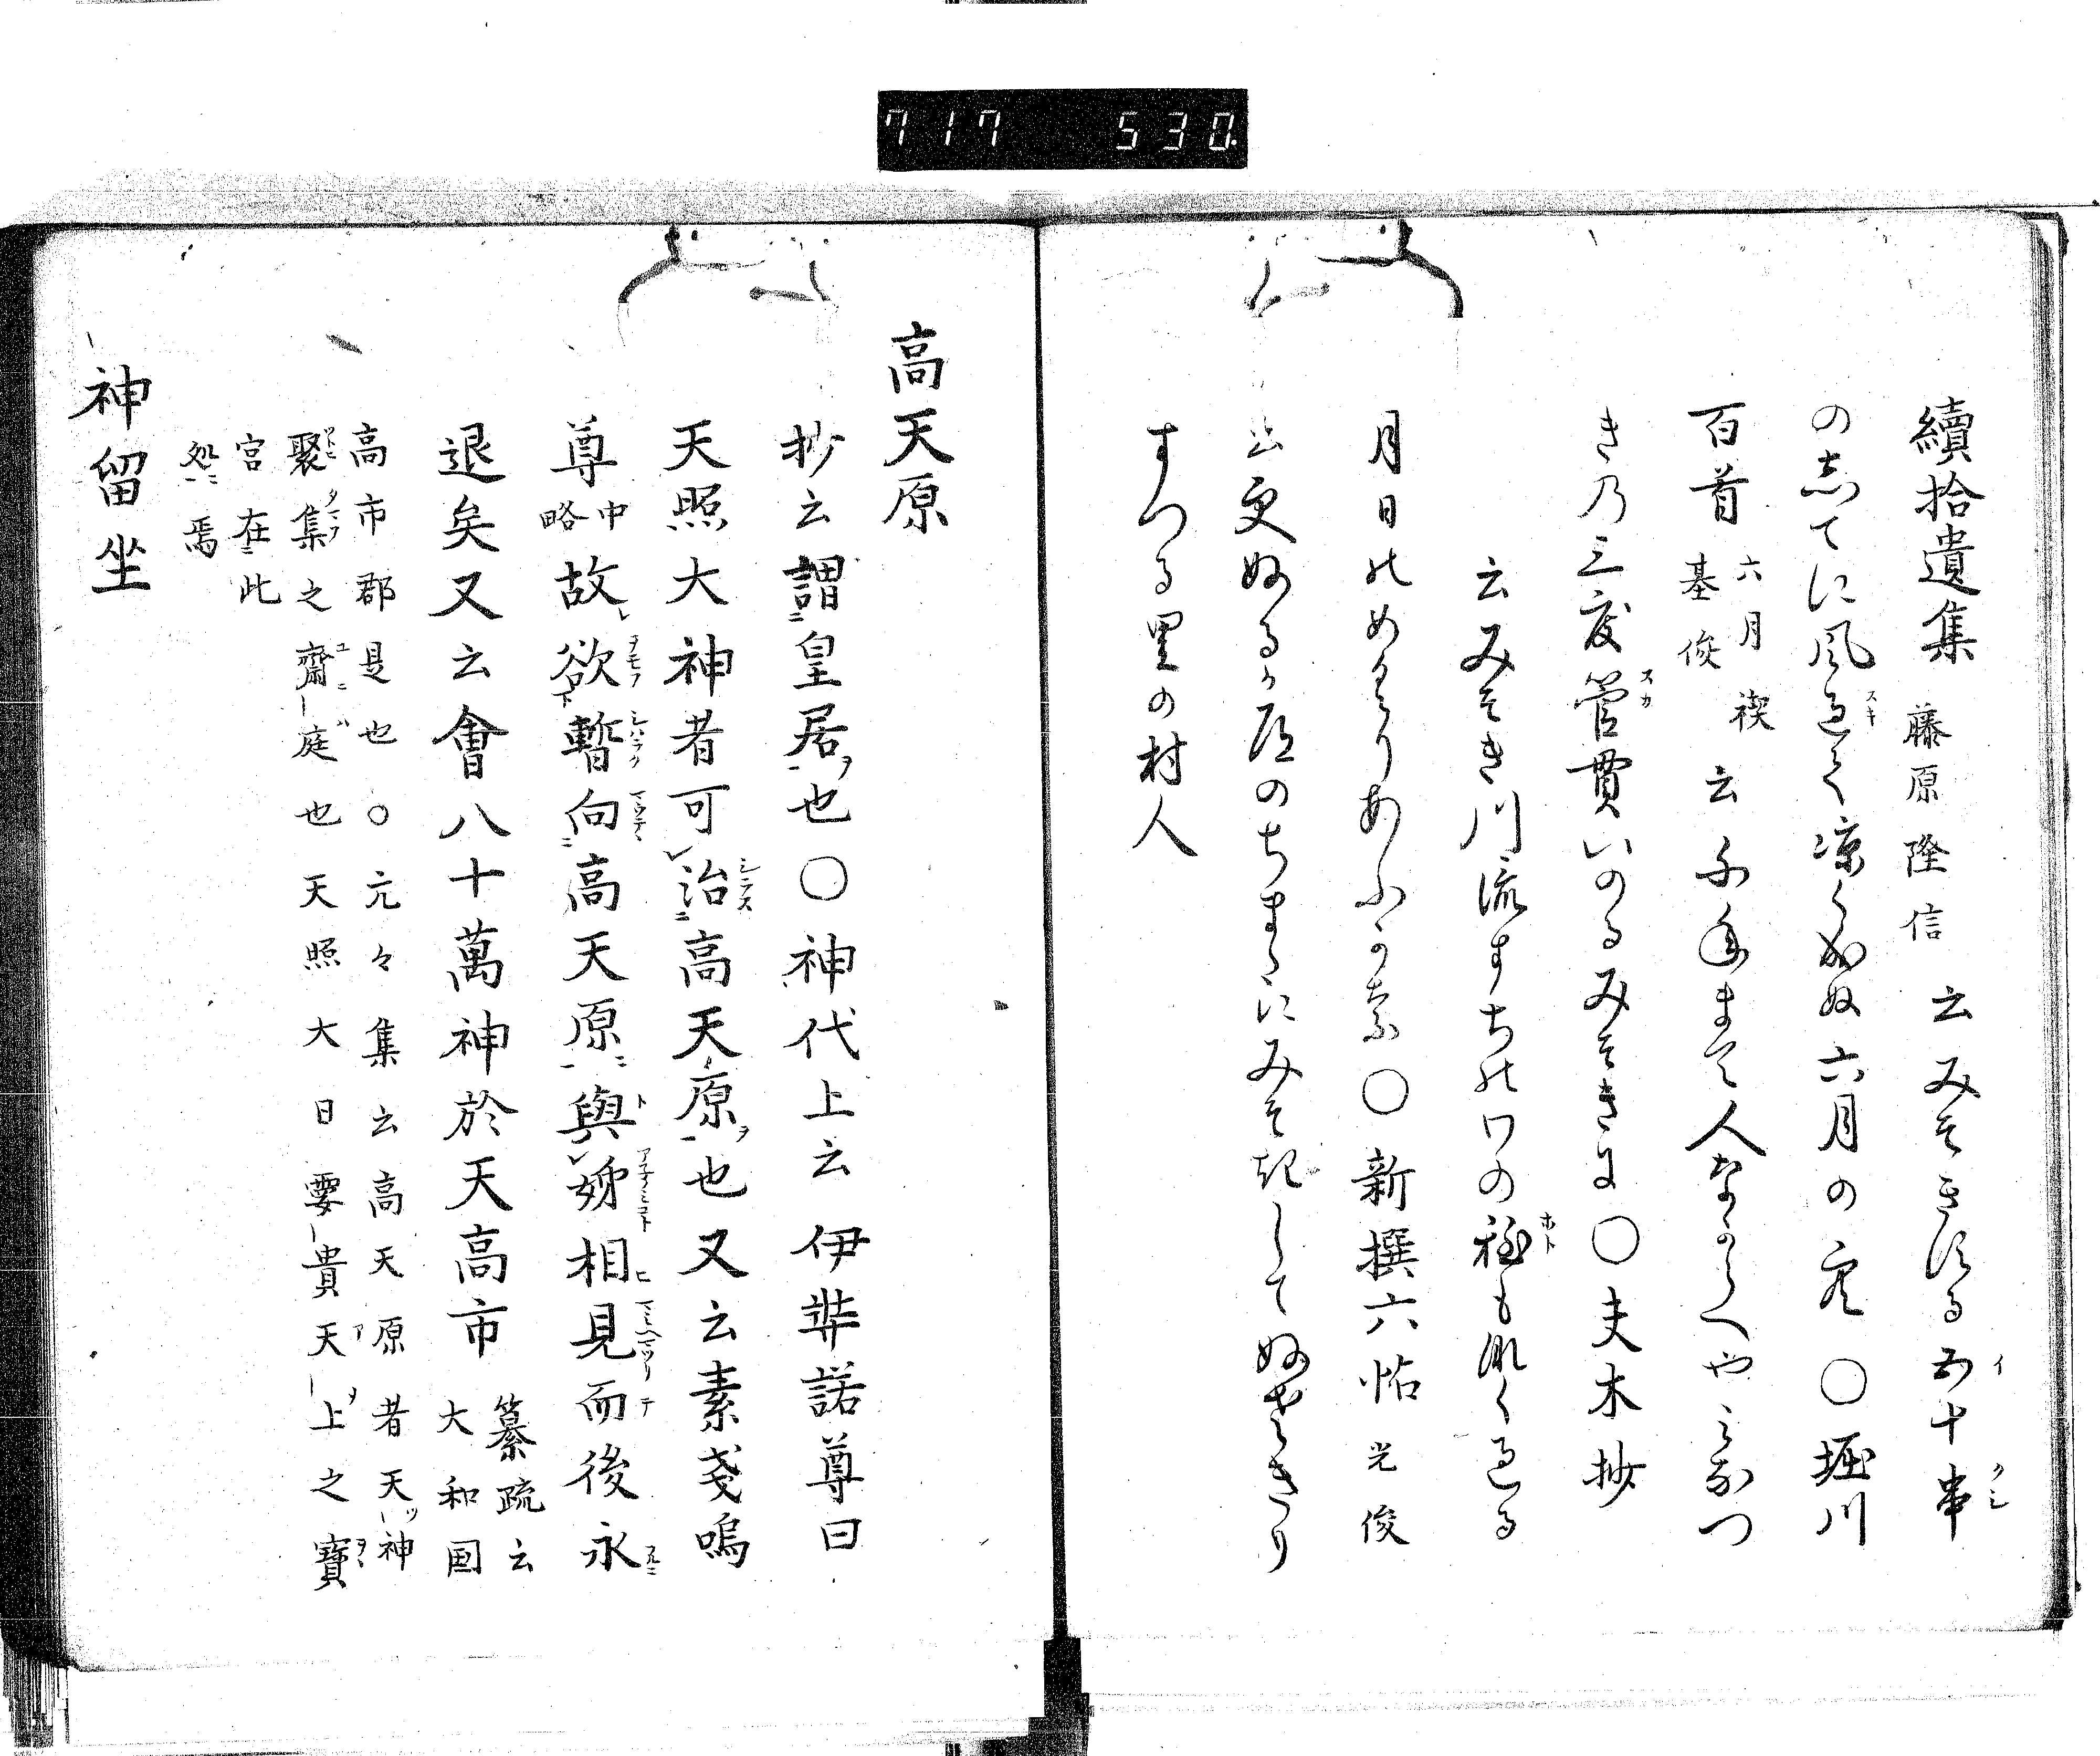 717 530
續拾遺集 藤原隆信 云みそきする五十串
の志てに風過て凉くなりぬ六月の空〇堀川
百首 六月禊 基俊 云千年まて人なからへやみなつ
きの三度菅貫いのるみそきに〇夫木抄
云みそき川流すちのわの程も深く過る
月日のめくりあふかな〇新撰六帖 光俊
云更ぬるか道のちまたにみそきして
すつる里の村人
高天原
抄云謂皇居也〇神代上云伊弉諾尊曰
天照大神者可治高天原也又云素戔嗚
尊 中略 故欲暫向高天原與姉相見而後永
退矣又云會八十萬神於天高市 纂疏云 大和国
高市郡是也〇元々集云高天原者天神
聚集之齋庭也天照大日孁貴天上之寶
宮在此
処焉
神留坐